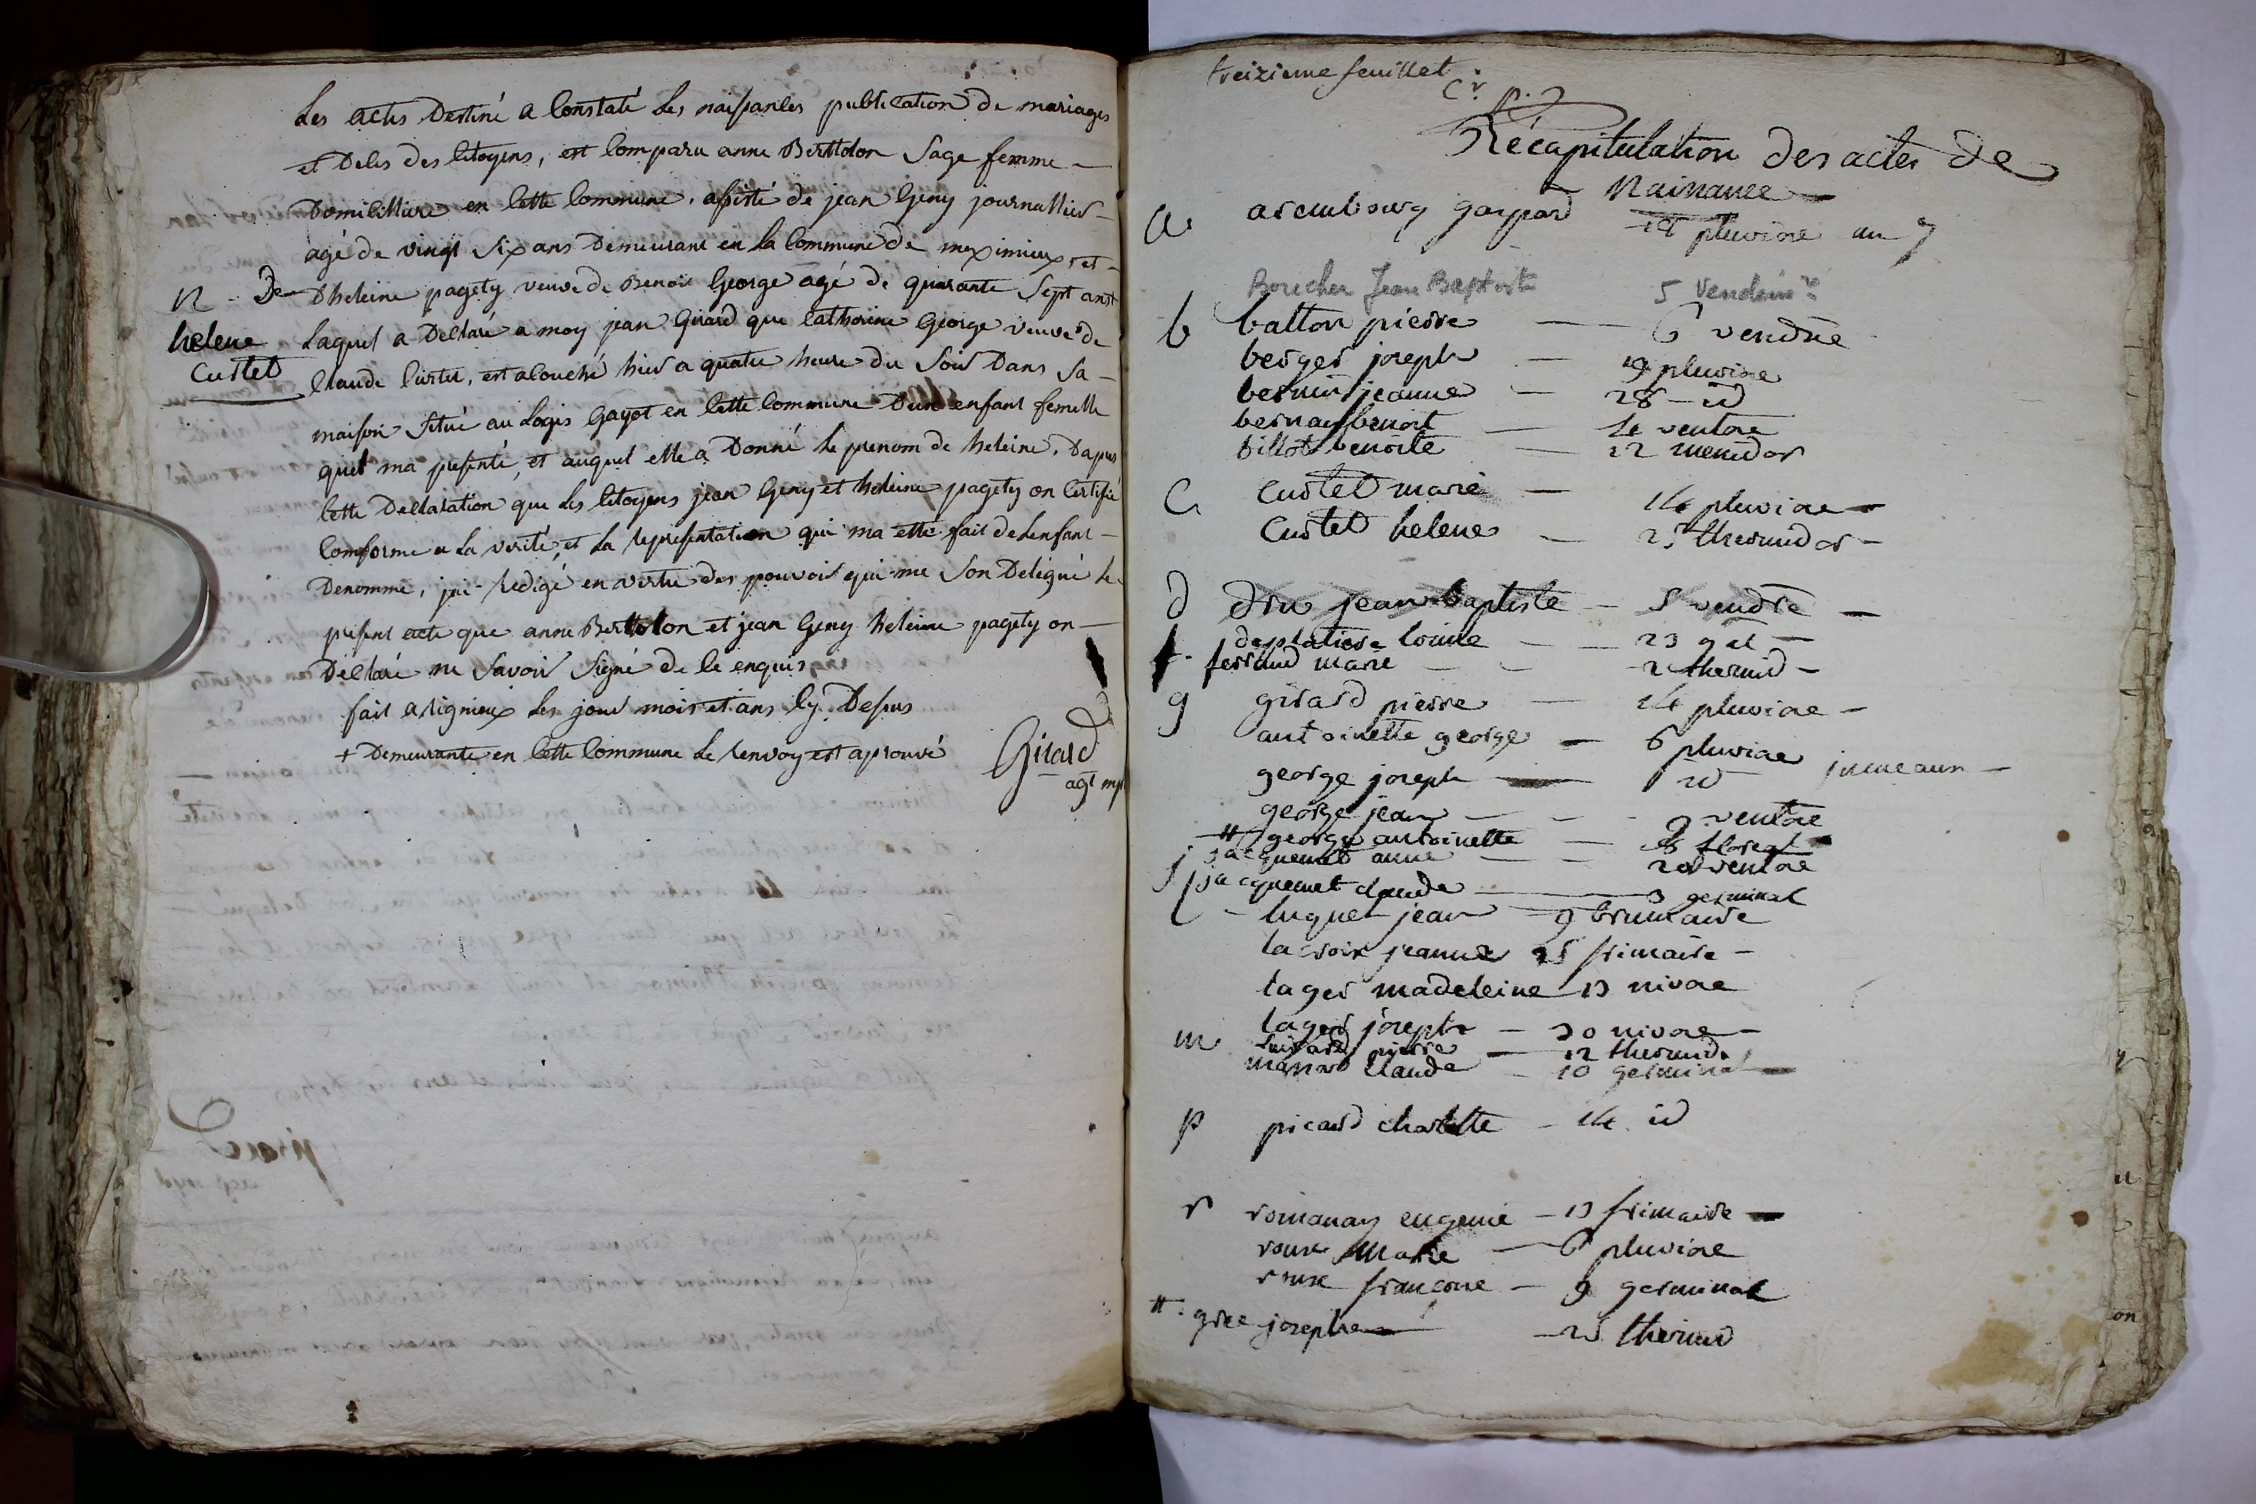 Les actes Destiné a Constaté Les naissances publication de mariages
et Deles des Citoyens, est Comparu anne Berttolon Sage femme
Domicilliere en Cette Commune, assisté de jean Geny journallier
agé de vingt Six ans Demeurant en la Commune de meximieux et
Dheleine pagety veuve de Benoit George agé de quarante Sept ans +
N De
helene
Curtet
Laquel a Declaré a moy jean Girard que Catherine George veuve de
Claude Curtet, est acouché hier a quatre heure du Soir Dans Sa
maison Situé au Logis Gayot en Cette Commune Dun enfant femelle
quel ma presenté, et auquel elle a Donné le prenom de heleine, Dapres
Cette Declaration que Les Citoyens jean Geny et heleine pagety on Certifié
Comforme a La verité, et La representation qui ma etté fait de Lenfant
Denommé, jai Redigé en vertu des pouvoir qui me Son Delegué Le
present acte que anne Berttolon et jean Geny heleine pagety on
Declaré ne Savoir Signé de Ce enquis
fait a rignieux Les jour mois et ans Cy Desus
+ Demeurante en Cette Commune Le Renvoy est aprouvé
Girard
agt mpl
treizieme feuillet
Récapitulation des actes de
Naissance
a arembourg gaspard 18 pluviose an 7
Boucher Jean Baptiste 5 Vendémre
b batton pierre 6 vendre
berger joseph 19 pluviose
bernin jeanne 28 id
bernay benoit 14 ventose
billot benoite 22 mesidor
C Curtet marie 14 pluviose
Curtet helene 25 thermidor
d dru jean baptiste 5 vendre
deplatiere louise 23 9 bre
f. ferrand marie 2 thermid
g girard pierre 14 pluviose
antoinette george 6 pluviose jumeaux
george joseph id
george jean 9 ventose
# george antoinette 28 floreal
j jacquemet anne 20 ventose
jacquemet claude 3 germinal
l luquet jean 9 brumaire
lacroix jeanne 25 frimaire
lager madeleine 13 nivose
lager joseph 30 nivose
pierre 12 thermid
m claude 10 germinal
p picard charlotte 14 id
r romanay eugenie 13 frimaire
roux Marie 6 pluviose
roux francoise 9 germinal
# gree josephe 25 thermid